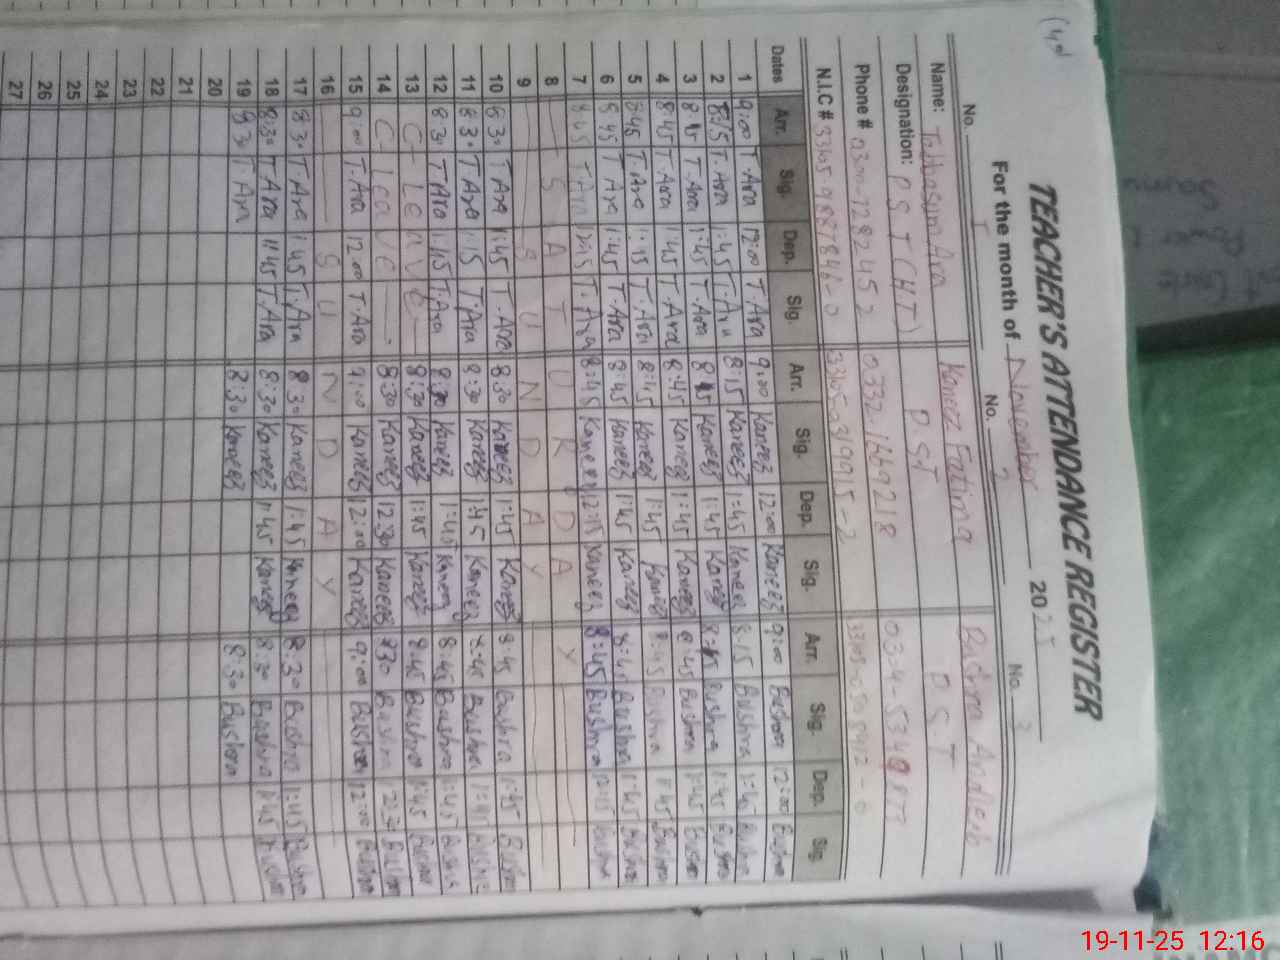 TEACHER'S ATTENDANCE REGISTER
For the month of November 2025
No. 1 No. 2 No. 3
Name: Tabbasum Ara Kaneez Fatima Bushra Andleeb
Designation: P S T (H.T) P S T P S T
Phone # 0332-1669218
N.I.C #
Dates Arr. Sig. Dep. Sig. Arr. Sig. Dep. Sig. Arr. Sig. Dep. Sig.
1 9:00 T.Ara 12:00 T.Ara 9:00 Kaneez 12:00 Kaneez 9:00 Bushra 12:00 Bushra
2 8:15 T.Ara 1:45 T.Ara 8:15 Kaneez 1:45 Kaneez 8:15 Bushra 1:45 Bushra
3 T.Ara 1:45 T.Ara Kaneez 1:45 Kaneez Bushra 1:45 Bushra
4 8:45 T.Ara 1:45 T.Ara 8:45 Kaneez 1:45 Kaneez 8:45 Bushra 1:45 Bushra
5 8:45 T.Ara 1:45 T.Ara 8:45 Kaneez 1:45 Kaneez 8:45 Bushra 1:45 Bushra
6 8:45 T.Ara 1:45 T.Ara 8:45 Kaneez 1:45 Kaneez 8:45 Bushra 1:45 Bushra
7 8:45 T.Ara 12:15 T.Ara 8:45 Kaneez 12:15 Kaneez 8:45 Bushra 12:15 Bushra
8 S A T U R D A Y
9 S U N D A Y
10 8:30 T.Ara 1:45 T.Ara 8:30 Kaneez 1:45 Kaneez 8:45 Bushra 1:45 Bushra
11 8:30 T.Ara 1:45 T.Ara 8:30 Kaneez 1:45 Kaneez 8:45 Bushra 1:45 Bushra
12 8:30 T.Ara 1:45 T.Ara 8:30 Kaneez 1:45 Kaneez 8:45 Bushra 1:45 Bushra
13 C-Leave 8:30 Kaneez 1:45 Kaneez 8:45 Bushra 1:45 Bushra
14 C-Leave 8:30 Kaneez 12:30 Kaneez 8:30 Bushra Bushra
15 9:00 T.Ara 12:00 T.Ara 9:00 Kaneez 12:00 Kaneez 9:00 Bushra 12:00 Bushra
16 S U N D A Y
17 8:30 T.Ara 1:45 T.Ara 8:30 Kaneez 1:45 Kaneez 8:30 Bushra 1:45 Bushra
18 8:30 T.Ara 1:45 T.Ara 8:30 Kaneez 1:45 Kaneez 8:30 Bushra 1:45 Bushra
19 8:30 T.Ara 8:30 Kaneez 8:30 Bushra
20
21
22
23
24
25
26
27
19-11-25 12:16